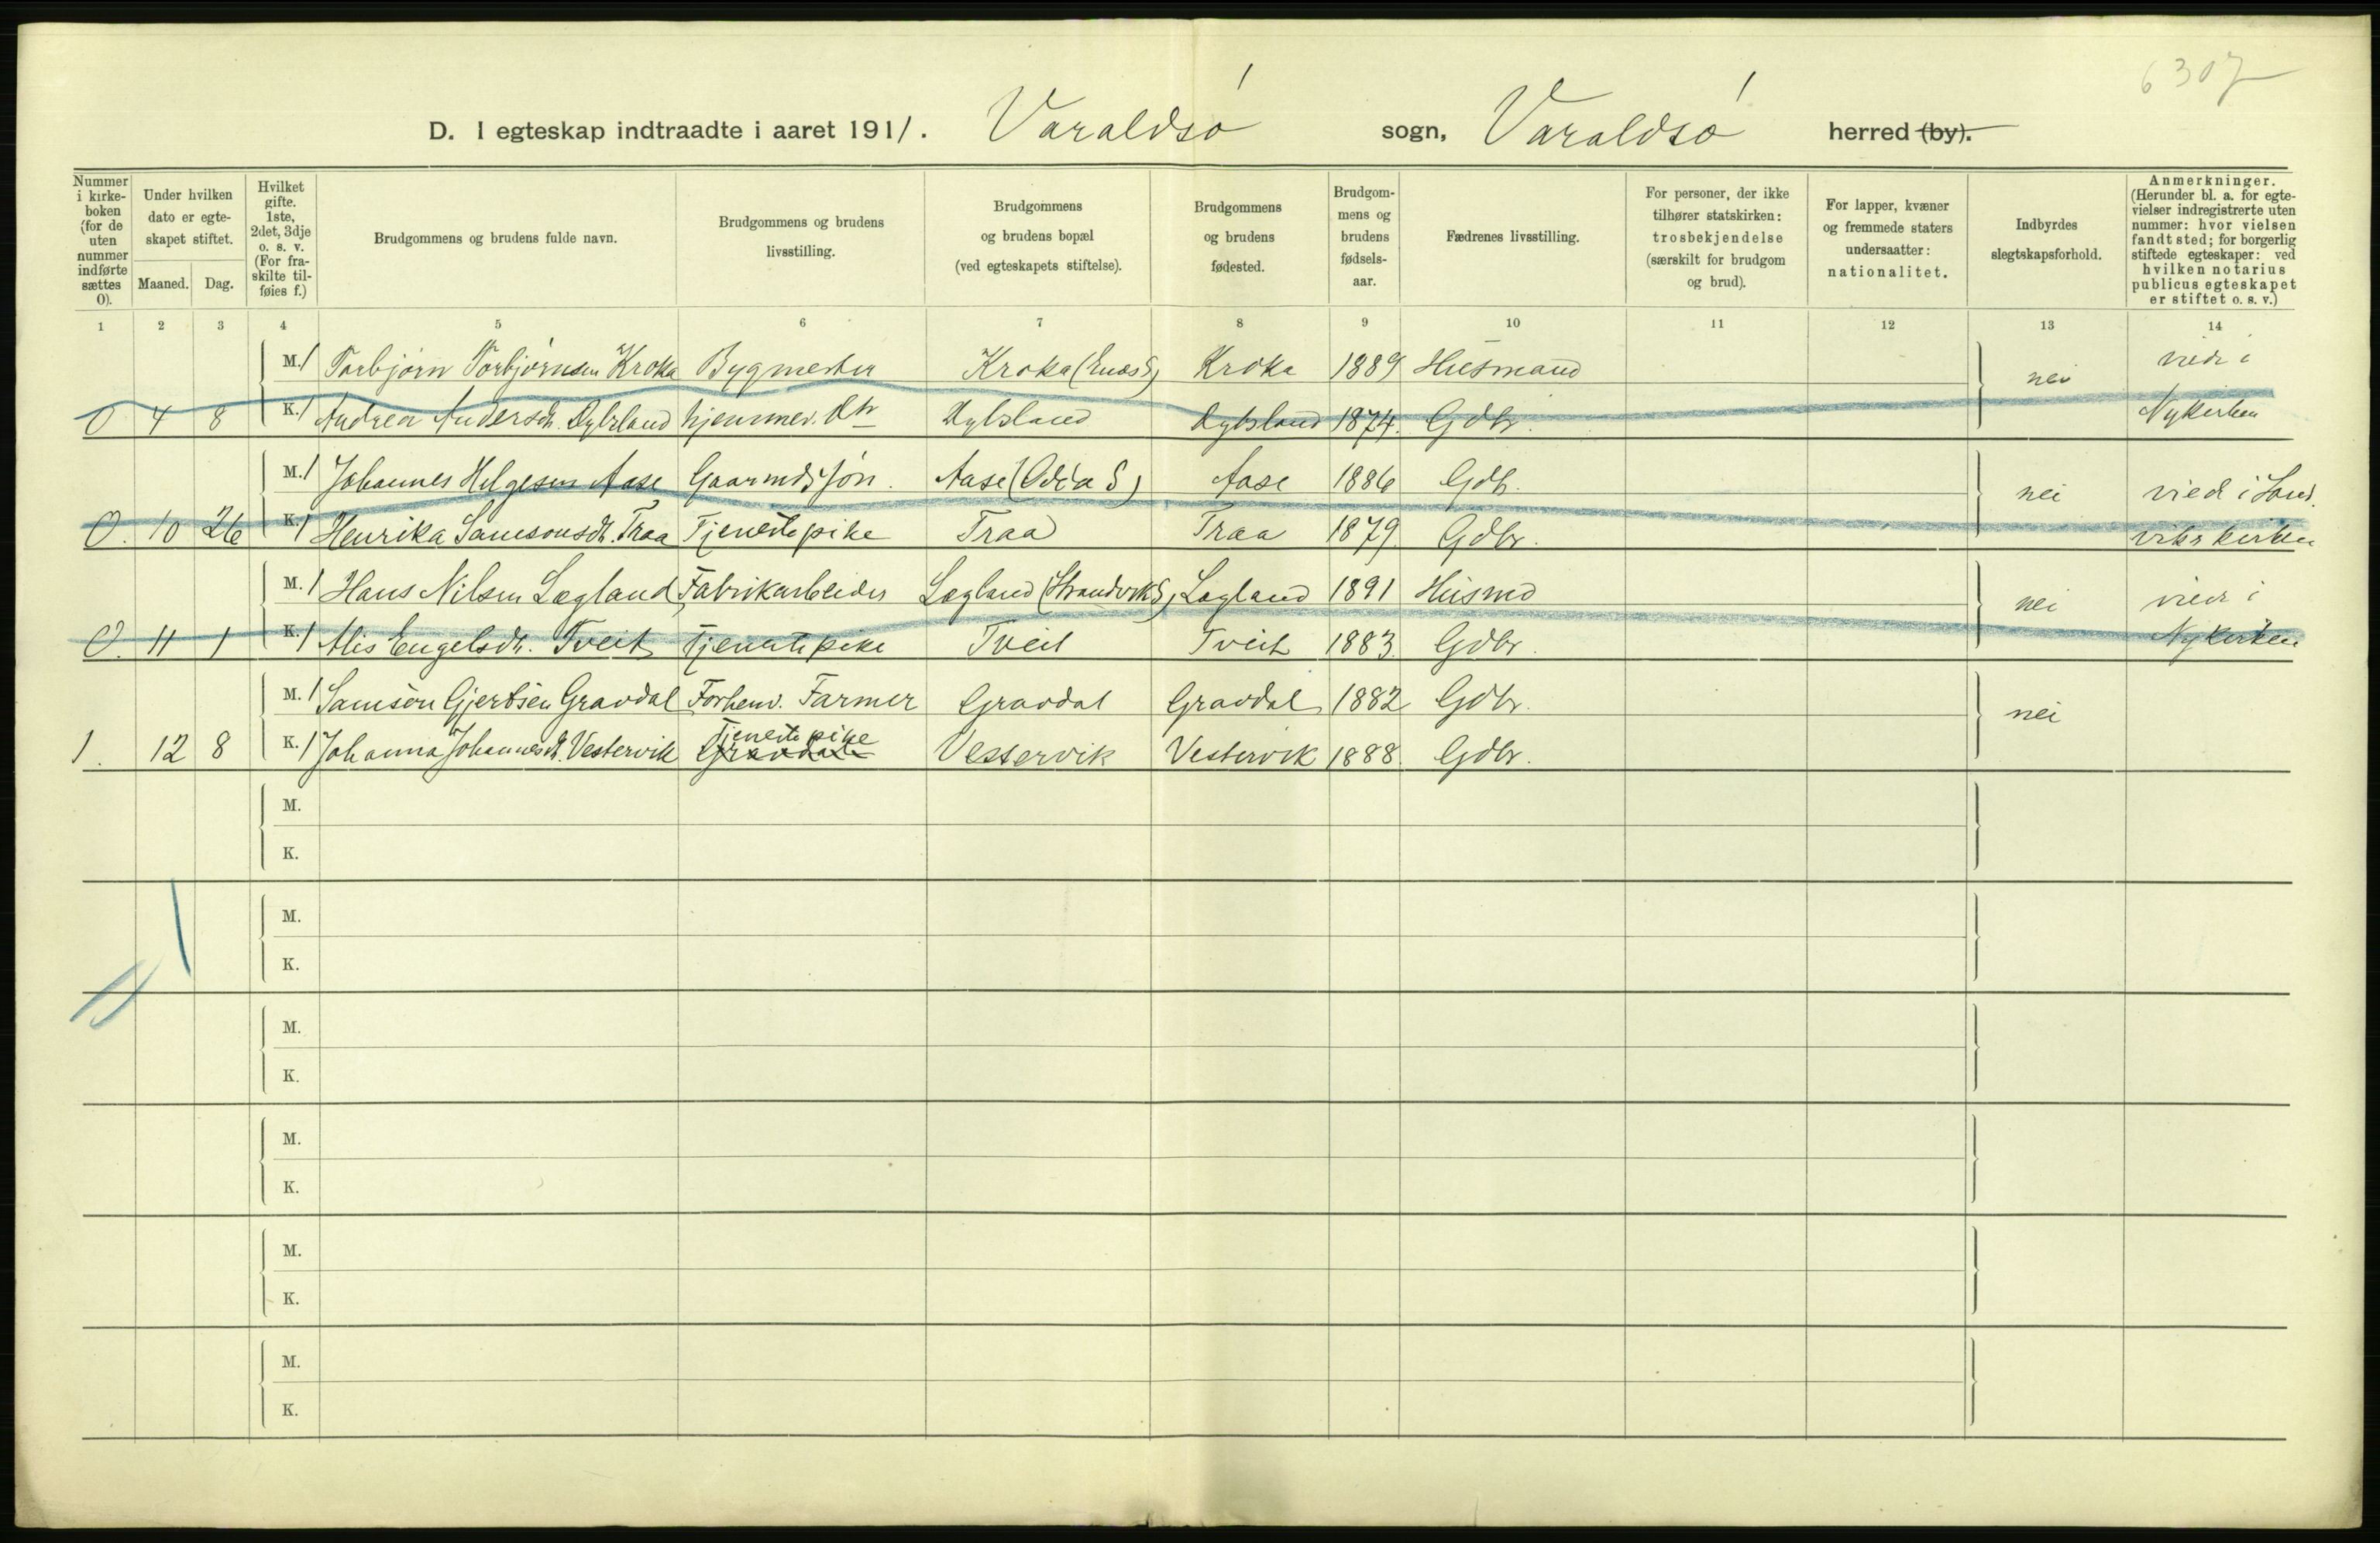 6307
D. I egteskap indtraadte i aaret 1911. Varaldsó sogn, Varaldsó herred (by).
Nummer i kirkeboken (for de uten nummer indførte sættes 0).
Under hvilken dato er egteskapet stiftet.
Maaned. Dag.
Hvilket gifte. 1ste, 2det, 3dje o. s. v. (For fraskilte tilføies f.)
Brudgommens og brudens fulde navn.
Brudgommens og brudens livsstilling.
Brudgommens og brudens bopæl (ved egteskapets stiftelse).
Brudgommens og brudens fødested.
Brudgommens og brudens fødselsaar.
Fædrenes livsstilling.
For personer, der ikke tilhører statskirken: trosbekjendelse (særskilt for brudgom og brud).
For lapper, kvæner og fremmede staters undersaatter: nationalitet.
Indbyrdes slegtskapsforhold.
Anmerkninger. (Herunder bl. a. for egtevielser indregistrerte uten nummer: hvor vielsen fandt sted; for borgerlig stiftede egteskaper: ved hvilken notarius publicus egteskapet er stiftet o. s. v.)
1 2 3 4 5 6 7 8 9 10 11 12 13 14
M. 1 Torbjørn Torbjørnsen Kroka Bygmester Kroka Kroka 1889 Husmand nei vied i
0 4 8 K. 1 Andrea Andersdt. hjemmev. 1874. Gdbr. Nykirken
M. 1 Johannes Helgesen Aase Gaarmdssøn. Aase (Odda S) Aase 1886 Gdb. nei vied i Sand
0. 10 26 K. 1 Henrika Samsonsdt. Traa Tjenestepike Traa Traa 1879 Gdbr. viks kirken
M. 1 Hans Nilsen Lægland Fabrikarbeider Lægland (Strandvik S) Lægland 1891 Husmd nei vied i
0. 11 1 K. 1 Alis Engelsdt. Tveit Tjenestepike Tveit Tveit 1883. Gdbr. Nykirken
M. 1 Samson Gjertsen Gravdal Forhenv. Farmer Gravdal Gravdal 1882 Gdbr. nei
1. 12 8 K. 1 Johanna Johannesdt. Vestervik Tjenestepike Gravdal Vestervik Vestervik 1888. Gdbr.
M.
K.
M.
K.
M.
K.
M.
K.
M.
K.
M.
K.